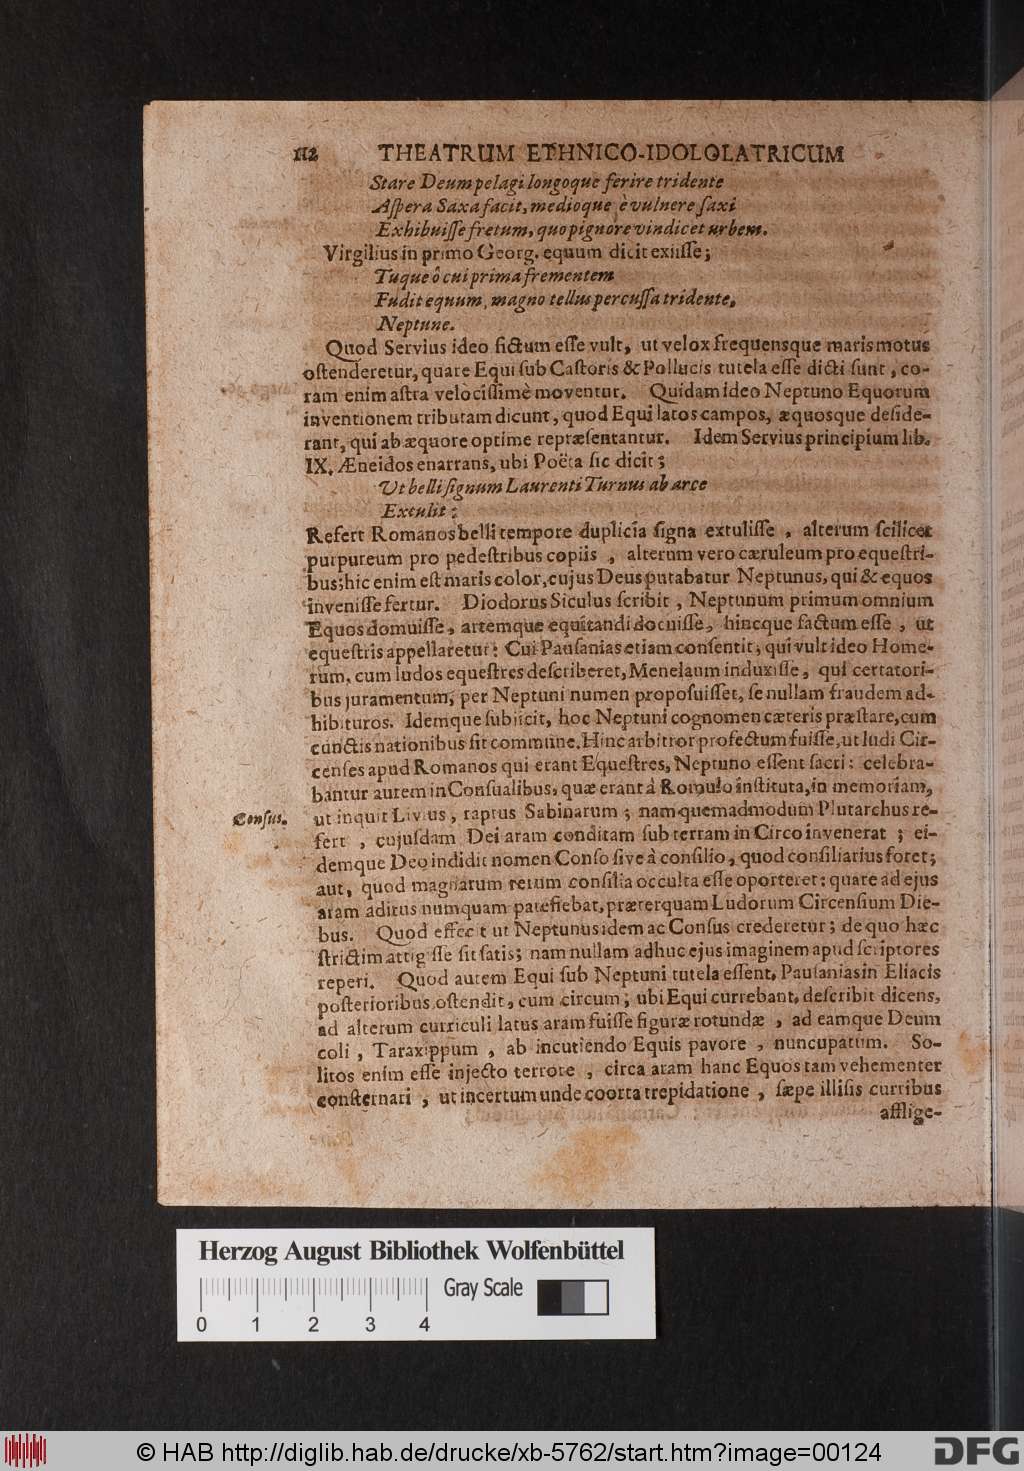 112 THEATRUM ETHNICO-IDOLOLATRICUM
Stare Deum pelagi longoque ferire tridente
Aſpera Saxa facit, medioque è vulnere ſaxi
Exhibuiſſe fretum, quo pignore vindicet urbem.
Virgilius in primo Georg. equum dicit exiiſſe;
Tuque ô cui prima frementem
Fudit equum, magno tellus percuſſa tridente,
Neptune.
Quod Servius ideo fictum eſſe vult, ut velox frequensque maris motus
oſtenderetur, quare Equi ſub Caſtoris & Pollucis tutela eſſe dicti ſunt, co-
ram enim aſtra velòciſſimè moventur. Quidam ideo Neptuno Equorum
inventionem tributam dicunt, quod Equi latos campos, æquosque deſide-
rant, qui ab æquore optime repræſentantur. Idem Servius principium lib.
IX. Æneidos enarrans, ubi Poëta ſic dicit;
Ut belli ſignum Laurenti Turnus ab arce
Extulit:
Refert Romanos belli tempore duplicia ſigna extuliſſe, alterum ſcilicet
purpureum pro pedeſtribus copiis, alterum vero cæruleum pro equeſtri-
bus; hic enim eſt maris color, cujus Deus putabatur Neptunus, qui & equos
inveniſſe fertur. Diodorus Siculus ſcribit, Neptunum primum omnium
Equos domuiſſe, artemque equitandi docuiſſe, hincque factum eſſe, ut
equeſtris appellaretur: Cui Pauſanias etiam conſentit, qui vult ideo Home-
rum, cum ludos equeſtres deſcriberet, Menelaum induxiſſe, qui certatori-
bus juramentum, per Neptuni numen propoſuiſſet, ſe nullam fraudem ad-
hibituros. Idemque ſubjicit, hoc Neptuni cognomen cæteris præſtare, cum
cunctis nationibus ſit commune. Hinc arbitror profectum fuiſſe, ut ludi Cir-
cenſes apud Romanos qui erant Equeſtres, Neptuno eſſent ſacri: celebra-
bantur autem in Conſualibus, quæ erant à Romulo inſtituta, in memoriam,
Conſus. ut inquit Livius, raptus Sabinarum; nam quemadmodum Plutarchus re-
fert, cujuſdam Dei aram conditam ſub terram in Circo invenerat; ei-
demque Deo indidit nomen Conſo ſive à conſilio, quod conſiliarius foret;
aut, quod magnarum rerum conſilia occulta eſſe oporteret: quare ad ejus
aram aditus numquam patefiebat, præterquam Ludorum Circenſium Die-
bus. Quod effecit ut Neptunus idem ac Conſus crederetur; de quo hæc
ſtrictim attigiſſe ſit ſatis; nam nullam adhuc ejus imaginem apud ſcriptores
reperi. Quod autem Equi ſub Neptuni tutela eſſent, Pauſanias in Eliacis
poſterioribus oſtendit, cum circum; ubi Equi currebant, deſcribit dicens,
ad alterum curriculi latus aram fuiſſe figuræ rotundæ, ad eamque Deum
coli, Taraxippum, ab incutiendo Equis pavore, nuncupatum. So-
litos enim eſſe injecto terrore, circa aram hanc Equos tam vehementer
conſternari, ut incertum unde coorta trepidatione, ſæpe illiſis curribus
afflige-
Herzog August Bibliothek Wolfenbüttel
Gray Scale
0 1 2 3 4
© HAB http://diglib.hab.de/drucke/xb-5762/start.htm?image=00124
DFG